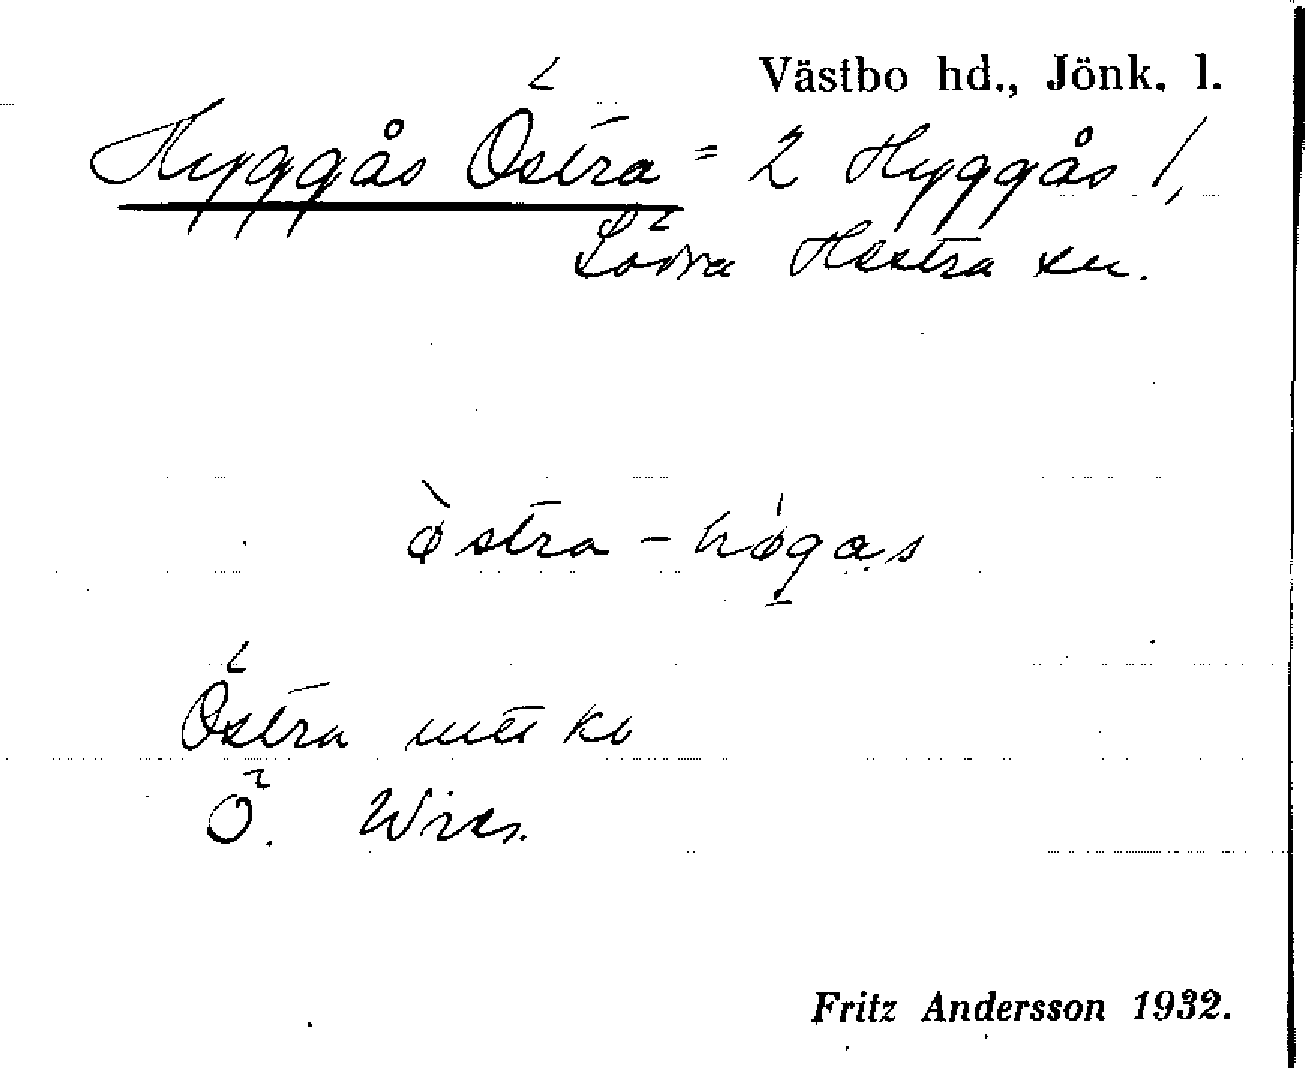 Västbo hd., Jönk. l.
Hyggås Östra = 2 Hyggås /,
Södra Hestra sn.
ø̀stra - hǿgas
Östra utt ko
Ö.
Fritz Andersson 1932.